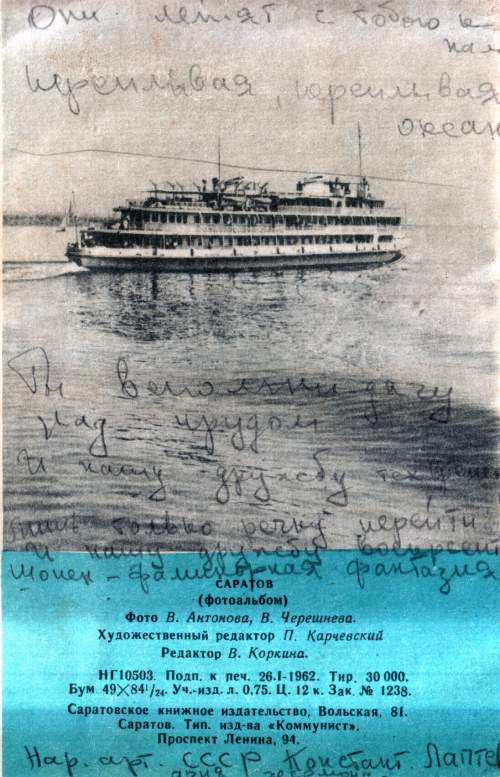 Они летят с тобою к
нам
океан
Ты вспомни дачу
над прудом
И нашу дружбу тех
лишь только речку перейти
И нашу дружбу воскресит
Шопен - фантазия
САРАТОВ
(фотоальбом)
Фото В. Антонова, В. Черешнева.
Художественный редактор П. Карчевский
Редактор В. Коркина.
НГ10503. Подп. к печ. 26.I-1962. Тир. 30 000.
Бум 49×84¹/₂₄. Уч.-изд. л. 0,75. Ц. 12 к. Зак. № 1238.
Саратовское книжное издательство, Вольская, 81.
Саратов. Тип. изд-ва «Коммунист».
Проспект Ленина, 94.
Нар. арт. СССР Констант. Лапте